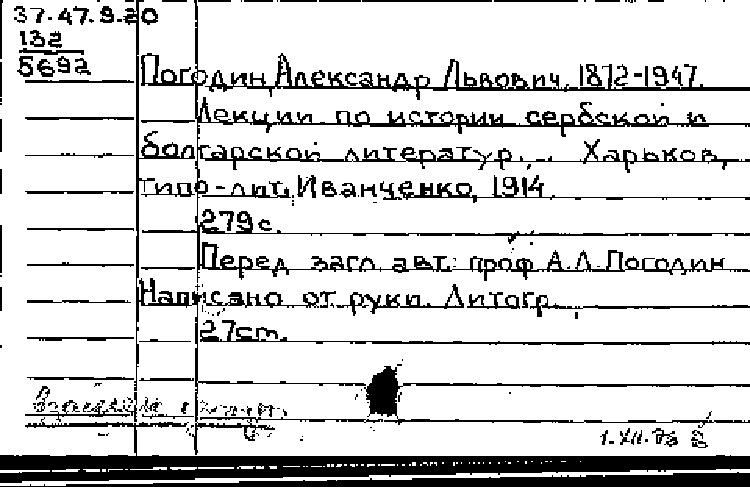 37.47.9.20
132
5692
Погодин, Александр Львович, 1872-1947.
Лекции по истории сербской и
болгарской литератур. Харьков,
типо-лит. Иванченко, 1914.
279 с.
Перед загл. авт: проф. А.Л. Погодин
Написано от руки. Литогр.
27 cm.
1.XII.76